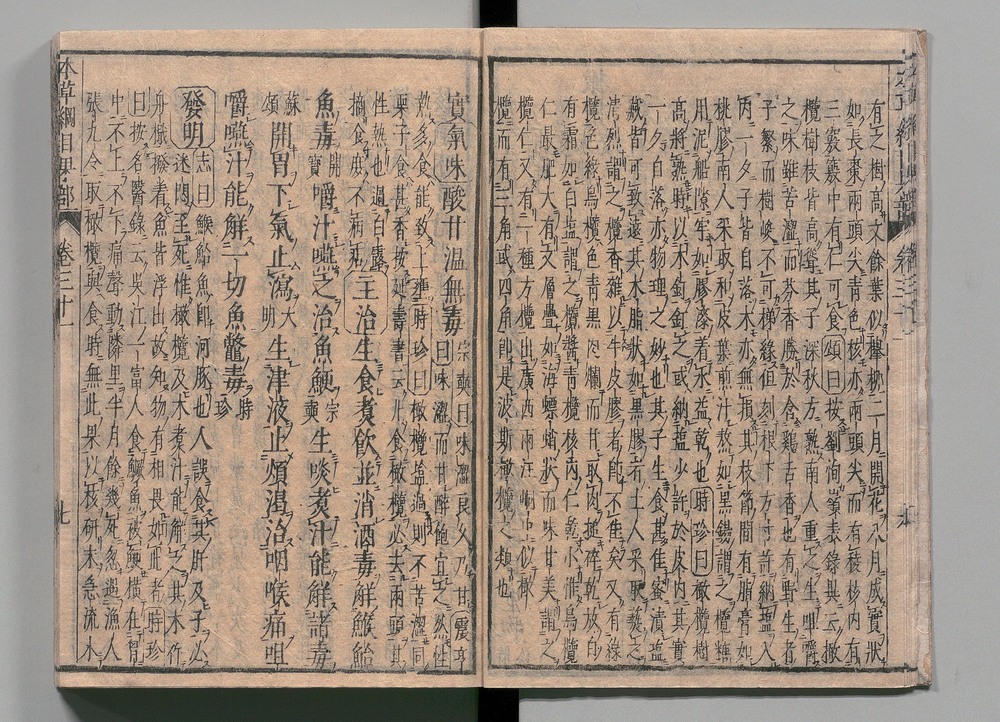 有之樹高丈餘葉似櫸柳二三月開花八月成實狀
如長棗兩頭尖青色核亦兩頭尖而有稜核內有
三竅竅中有仁可食頌曰按劉恂嶺表錄異云橄
欖樹枝皆高聳其子深秋方熟南人重之生嚼
之味雖苦澀而芬香勝於含雞舌香也有野生者
子繁而樹峻不可梯緣但刻根下方寸許納鹽入
內一夕子皆自落木亦無損其枝節間有脂膏如
桃膠南人采取和皮葉煎汁熬如黑餳謂之欖糖
用泥船隙牢如膠漆着水益乾也時珍曰橄欖樹
高將熟時以木釘釘之或納鹽少許於皮內其實
一夕自落亦物理之妙也其子生食甚佳蜜漬鹽
藏皆可致遠其木脂狀如黑膠者土人采取爇之
清烈謂之欖香雜以牛皮膠者即不佳矣又有綠
欖色綠烏欖色青黑肉爛而甘取肉搥碎乾放自
有霜如白鹽謂之欖醬青欖核內仁乾小惟烏欖
仁最肥大有文層疊如海螵蛸狀而味甘美謂之
欖仁又有一種方欖出廣西兩江峒中似橄
欖而有三角或四角即是波斯橄欖之類也
實氣味酸甘溫無毒宗奭曰味澀良久乃甘震亨
曰味澀而甘醉飽宜之然性
熱多食能致上壅時珍曰橄欖鹽過則不苦澀同
栗子食甚香按延壽書云凡食橄欖必去兩頭其
性熱也過白露
摘食庶不病痁主治生食煮飲並消酒毒解鯸鮐
魚毒開寶嚼汁嚥之治魚鯁宗奭生啖煮汁能解諸毒
蘇頌開胃下氣止瀉大明生津液止煩渴治咽喉痛咀
嚼嚥汁能解一切魚鱉毒時珍
發明志曰鯸鮐魚即河豚也人誤食其肝及子必
迷悶至死惟橄欖及木煮汁能解之其木作
舟楫撥着魚皆浮出故知物有相畏如此者時珍
曰按名醫錄云吳江一富人食鱖魚被鯁橫在胸
中不上不下痛聲動鄰里半月餘幾死忽遇漁人
張九令取橄欖與食時無此果以核研末急流水
本草綱目果部
卷三十一
七